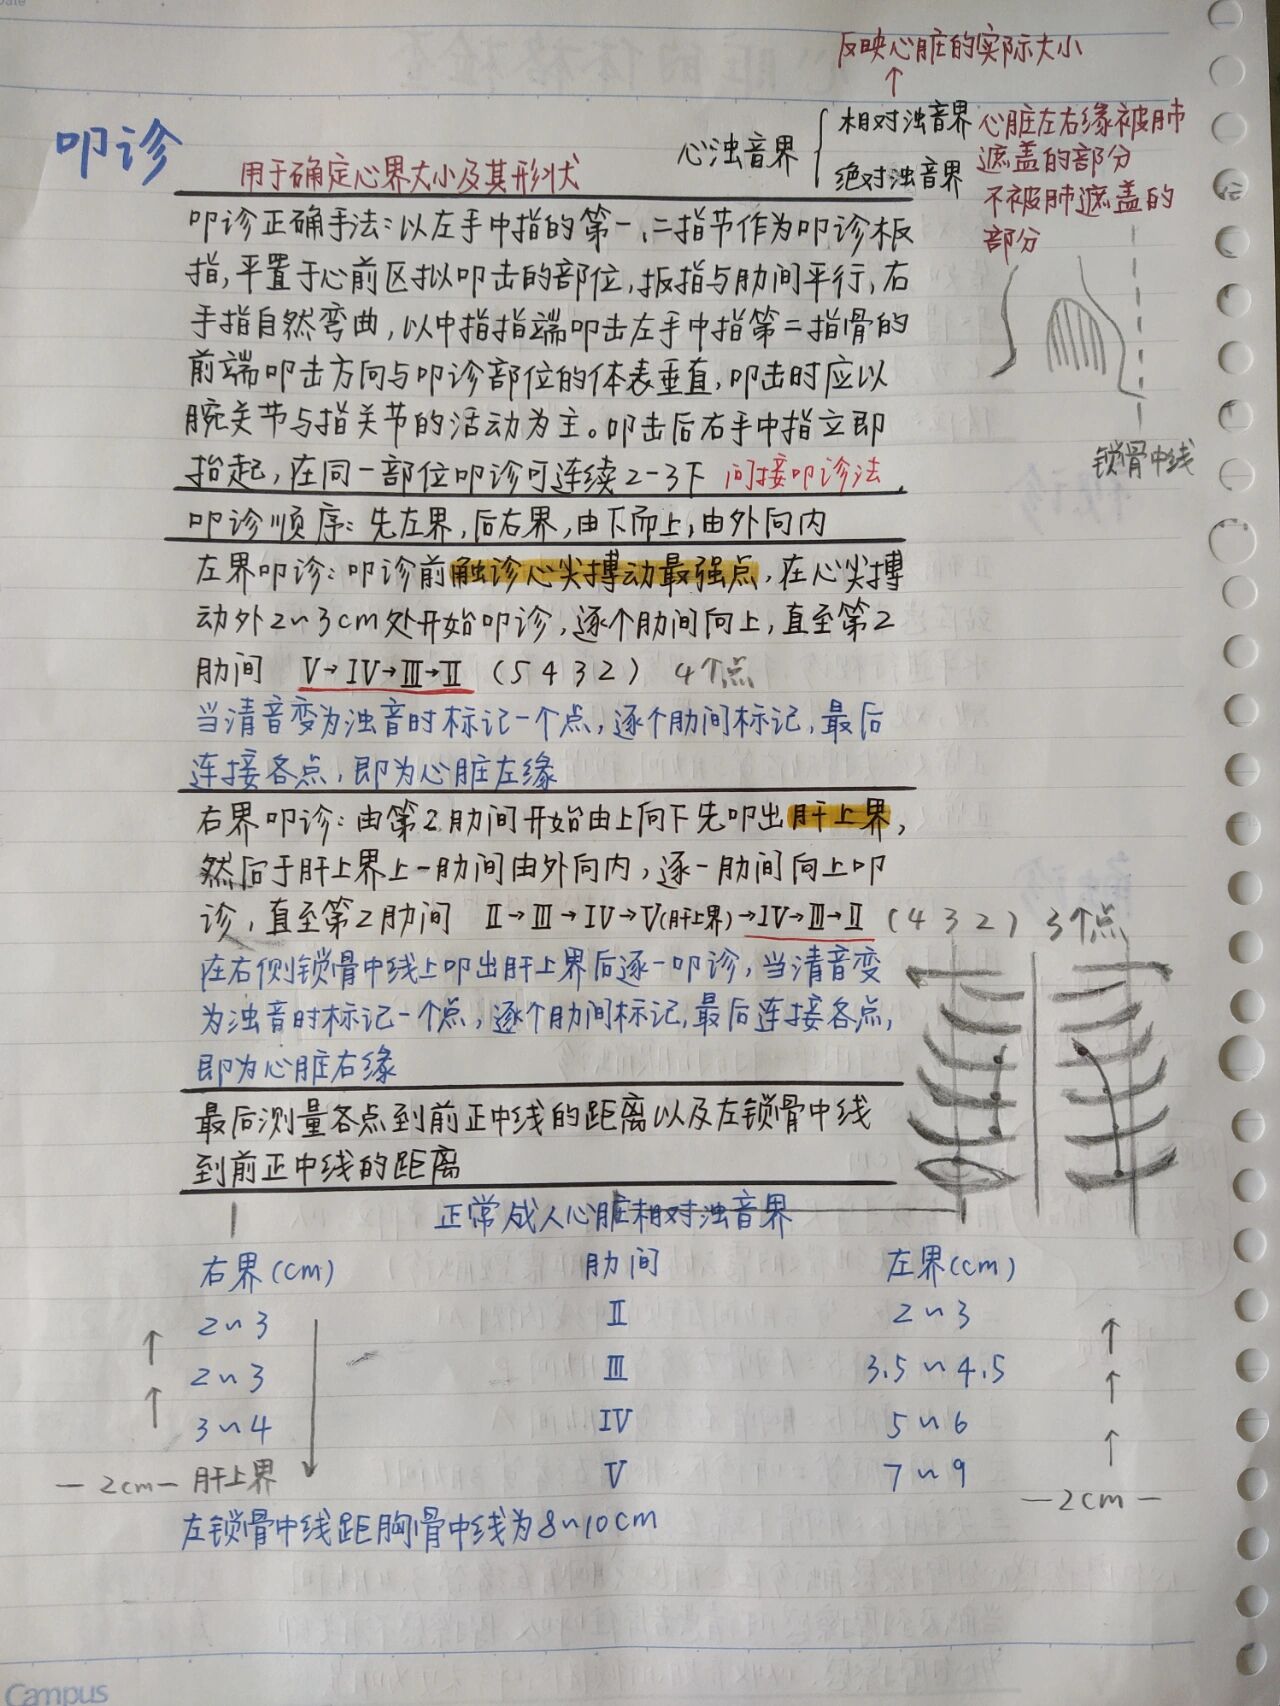 反映心脏的实际大小
↑
叩诊
用于确定心界大小及其形状
心浊音界
相对浊音界 心脏左右缘被肺
遮盖的部分
绝对浊音界 不被肺遮盖的
部分
叩诊正确手法:以左手中指的第一、二指节作为叩诊板
指,平置于心前区拟叩击的部位,扳指与肋间平行,右
手指自然弯曲,以中指指端叩击左手中指第二指骨的
前端叩击方向与叩诊部位的体表垂直,叩击时应以
腕关节与指关节的活动为主。叩击后右手中指立即
抬起,在同一部位叩诊可连续2-3下 间接叩诊法
锁骨中线
叩诊顺序:先左界,后右界,由下而上,由外向内
左界叩诊:叩诊前触诊心尖搏动最强点,在心尖搏
动外2~3cm处开始叩诊,逐个肋间向上,直至第2
肋间 Ⅴ→Ⅳ→Ⅲ→Ⅱ (5432) 4个点
当清音变为浊音时标记一个点,逐个肋间标记,最后
连接各点,即为心脏左缘
右界叩诊:由第2肋间开始由上向下先叩出肝上界,
然后于肝上界上一肋间由外向内,逐一肋间向上叩
诊,直至第2肋间 Ⅱ→Ⅲ→Ⅳ→Ⅴ(肝上界)→Ⅳ→Ⅲ→Ⅱ (432) 3个点
在右侧锁骨中线上叩出肝上界后逐一叩诊,当清音变
为浊音时标记一个点,逐个肋间标记,最后连接各点,
即为心脏右缘
最后测量各点到前正中线的距离以及左锁骨中线
到前正中线的距离
正常成人心脏相对浊音界
右界(cm) 肋间 左界(cm)
2~3 Ⅱ 2~3
2~3 Ⅲ 3.5~4.5
3~4 Ⅳ 5~6
—2cm— 肝上界 Ⅴ 7~9 —2cm—
左锁骨中线距胸骨中线为8~10cm
Campus